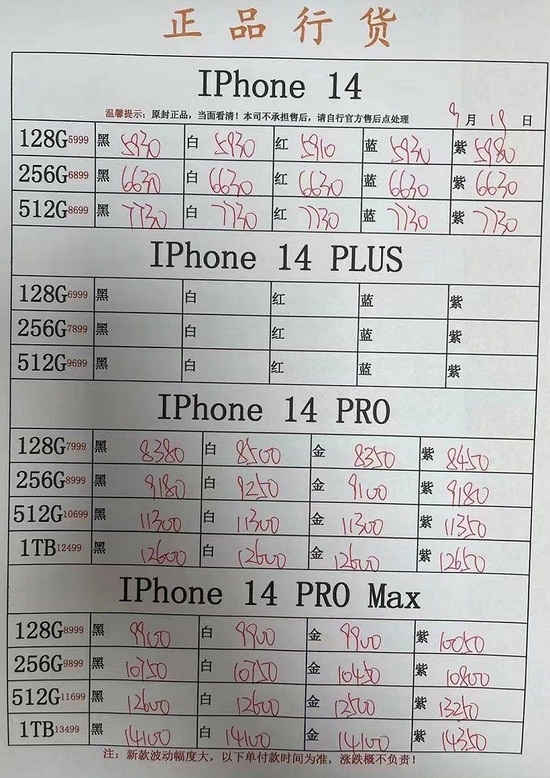 正品行货
IPhone 14
温馨提示:原封正品,当面看清!本司不承担售后,请自行官方售后点处理 9月19日
128G5999 黑 5930 白 5930 红 5910 蓝 5930 紫 5980
256G6899 黑 6630 白 6630 红 6630 蓝 6630 紫 6630
512G8699 黑 7730 白 7730 红 7730 蓝 7730 紫 7730
IPhone 14 PLUS
128G6999 黑 白 红 蓝 紫
256G7899 黑 白 红 蓝 紫
512G9699 黑 白 红 蓝 紫
IPhone 14 PRO
128G7999 黑 8380 白 8500 金 8350 紫 8450
256G8999 黑 9180 白 9250 金 9100 紫 9180
512G10699 黑 11300 白 11300 金 11300 紫 11350
1TB12499 黑 12600 白 12600 金 12600 紫 12650
IPhone 14 PRO Max
128G8999 黑 9900 白 9900 金 9900 紫 10050
256G9899 黑 10750 白 10750 金 10450 紫 10800
512G11699 黑 12600 白 12600 金 12500 紫 13250
1TB13499 黑 14100 白 14100 金 14100 紫 14350
注:新款波动幅度大,以下单付款时间为准,涨跌概不负责!